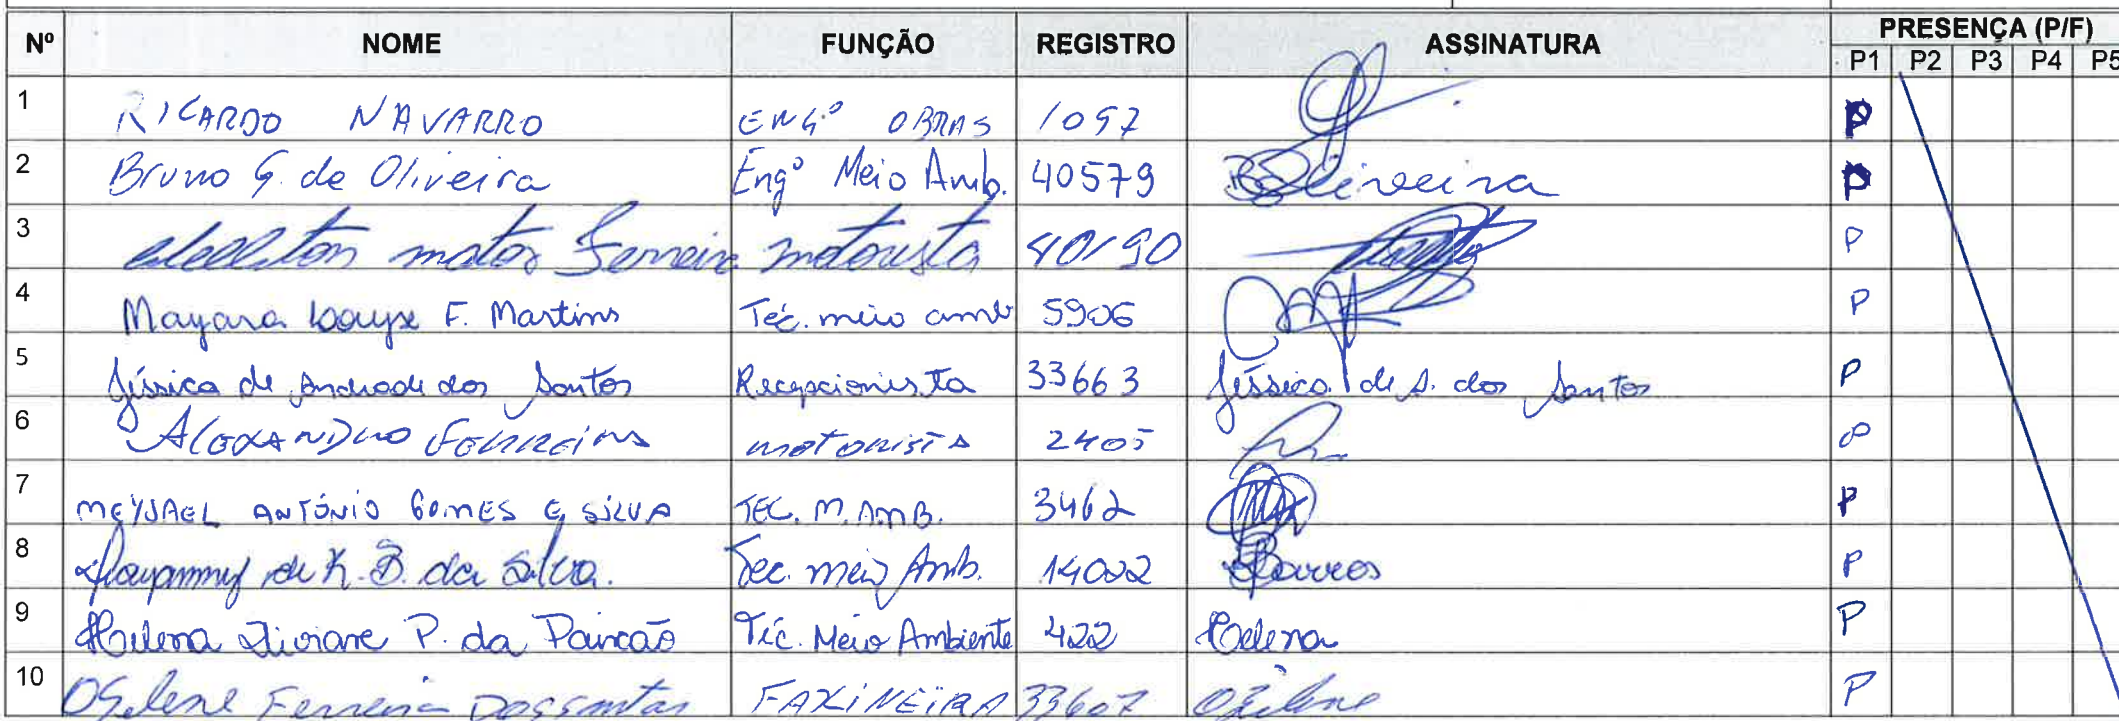 Nº NOME FUNÇÃO REGISTRO ASSINATURA PRESENÇA (P/F)
P1 P2 P3 P4 P5
1 RICARDO NAVARRO ENGº OBRAS 1097 P
2 Bruno G. de Oliveira Engº Meio Amb. 40579 Oliveira P
3 matos Ferreira motorista 40190 P
4 Mayara F. Martins Téc. meio amb 5906 P
5 Jéssica de Andrade dos Santos Recepcionista 33663 Jéssica de A. dos Santos P
6 Alexandro Ferreira motorista 2405 P
7 MEYSAEL ANTÔNIO GOMES E SILVA TEC. M. AMB. 3462 P
8 de K. B. da Silva. Tec. meio Amb. 14022 Barros P
9 Helena Liviane P. da Paixão Téc. Meio Ambiente 422 Helena P
10 Ozilene Ferreira Dos santos FAXINEIRA 33607 Ozilene P